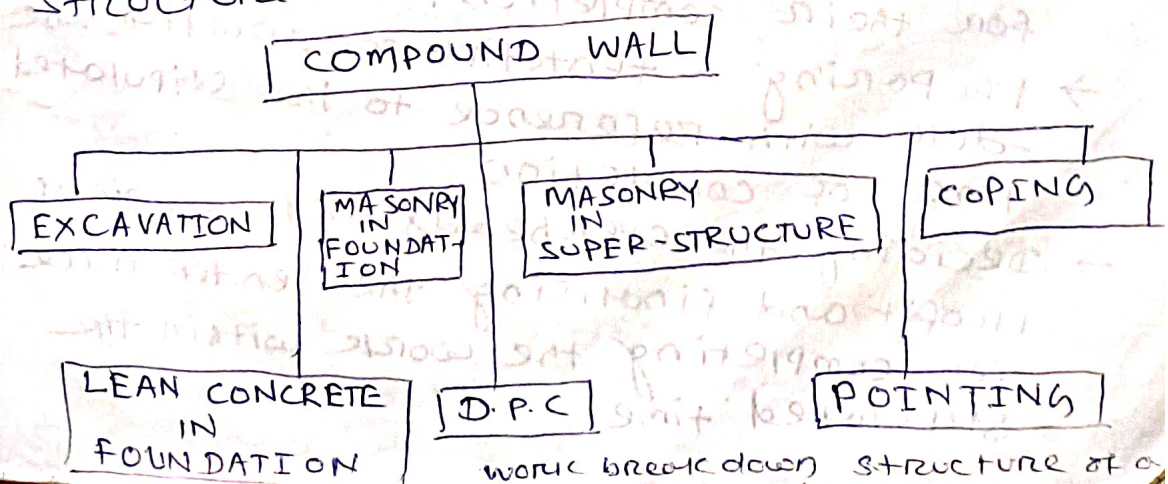 COMPOUND WALL
EXCAVATION
MASONRY
IN
FOUNDAT-
ION
MASONRY
IN
SUPER-STRUCTURE
COPING
LEAN CONCRETE
IN
FOUNDATION
D.P.C
POINTING
work break down structure of a